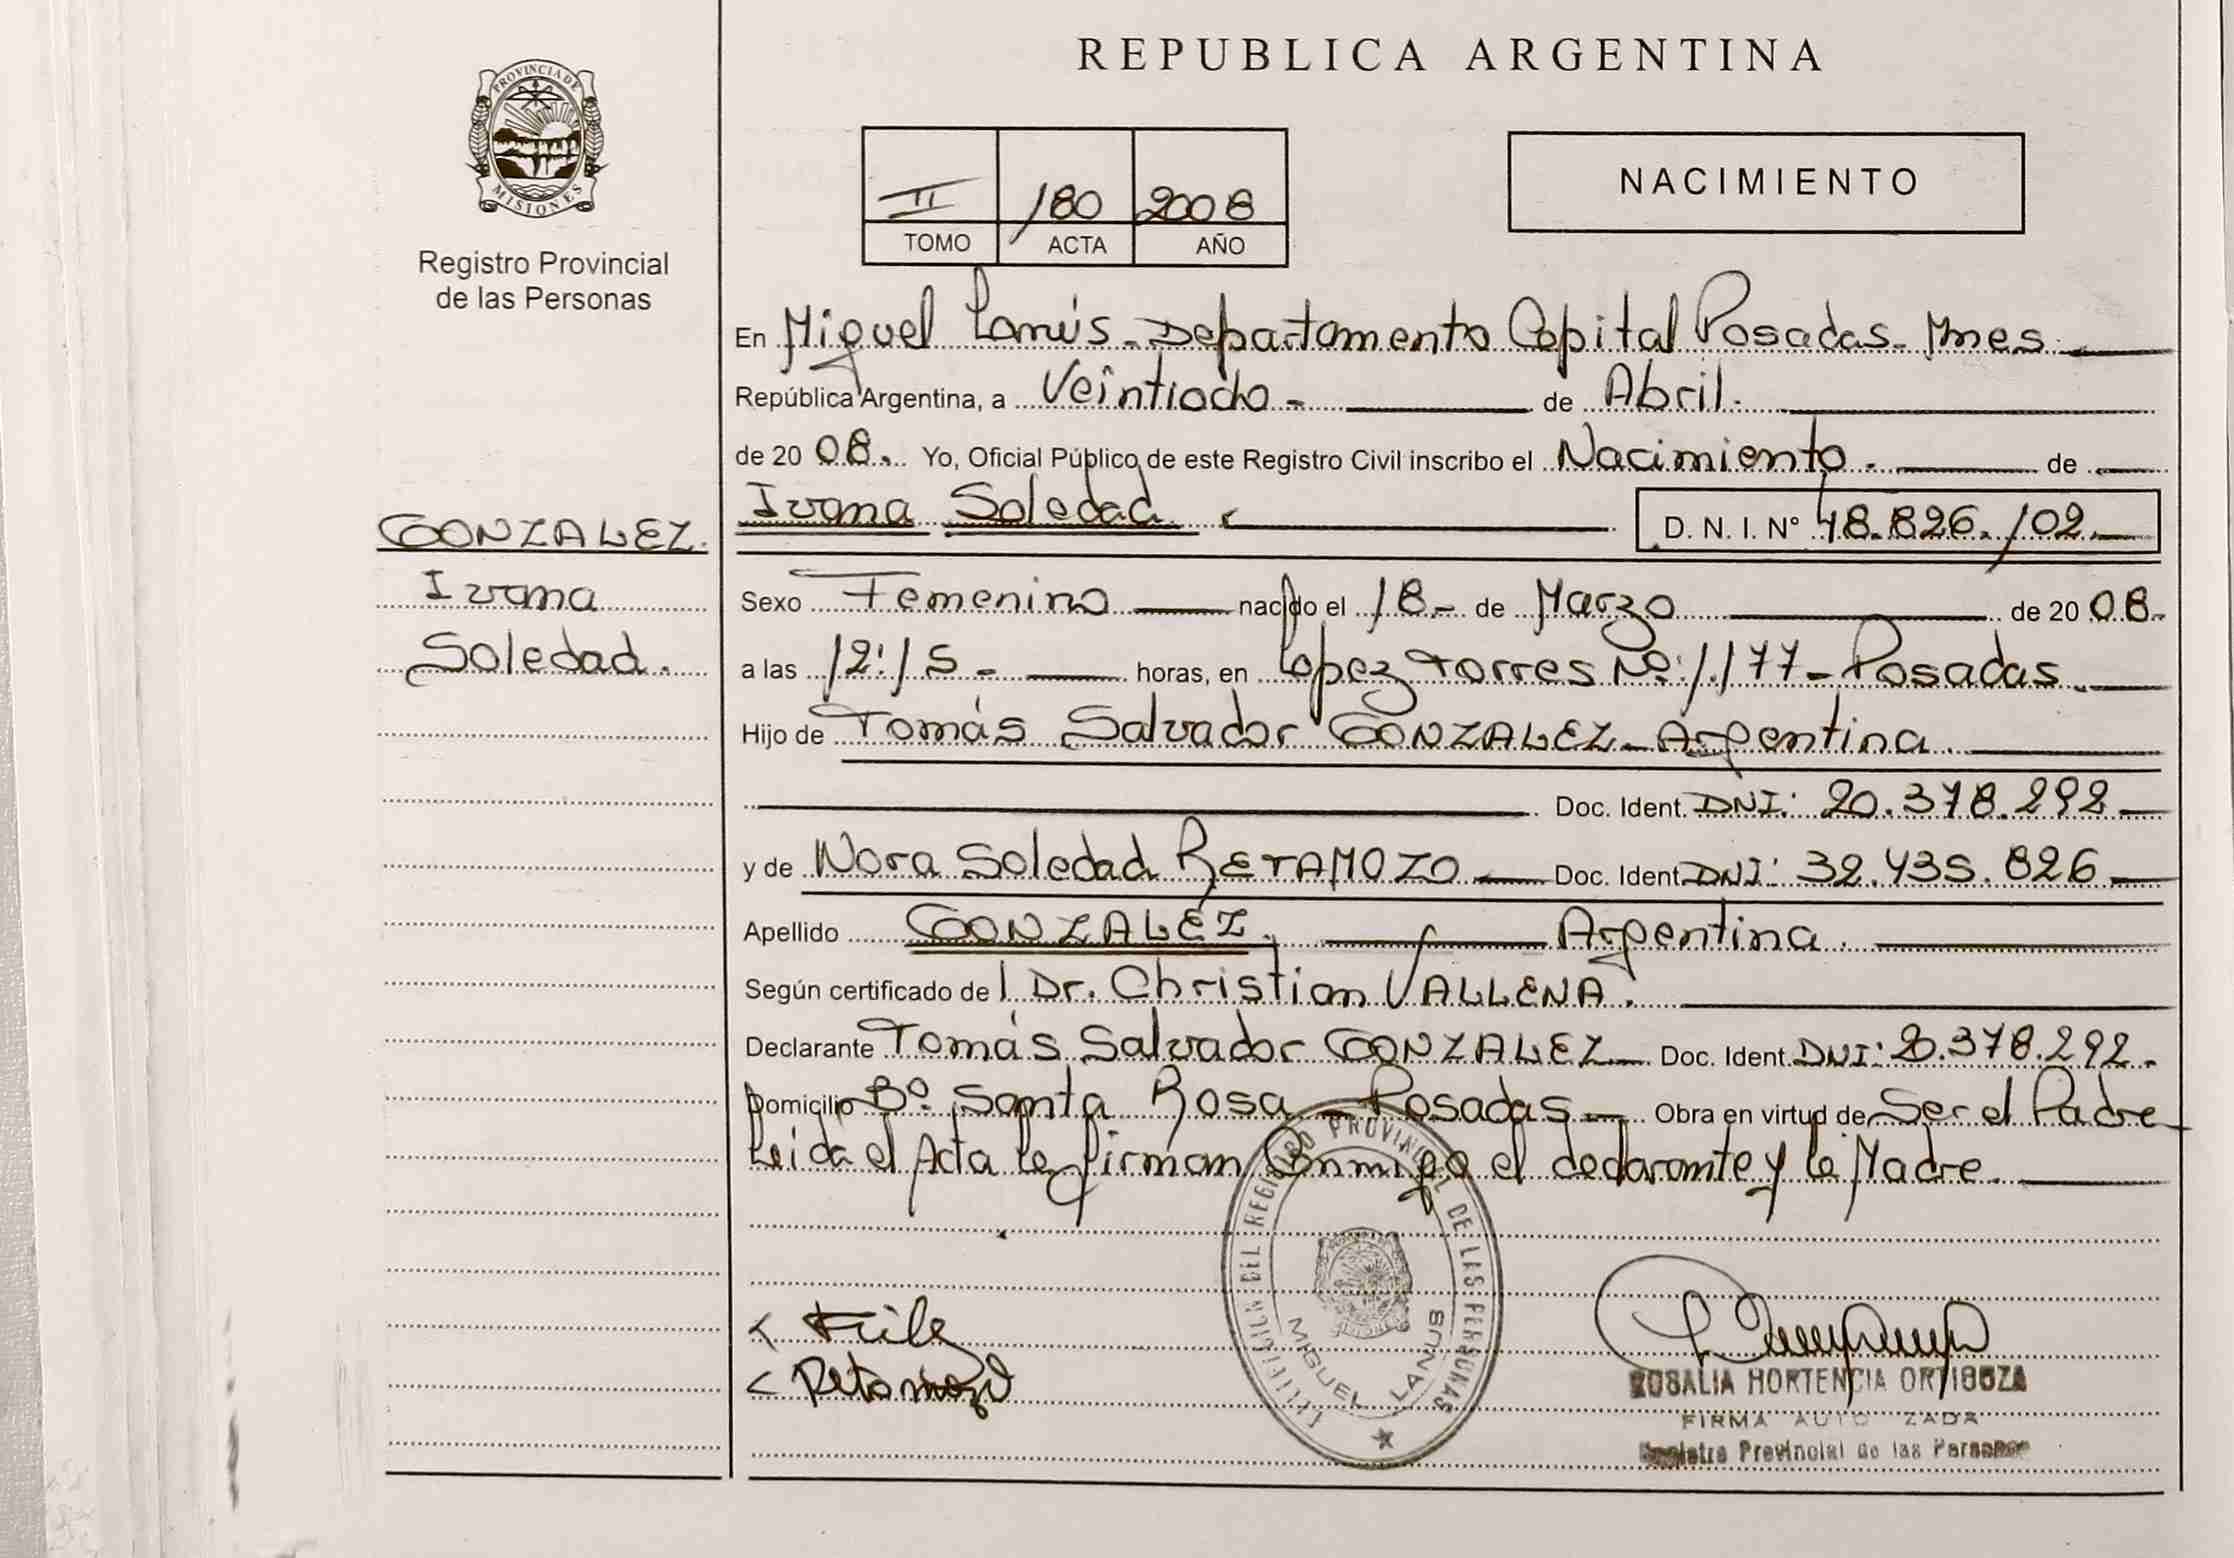 PROVINCIA DE
MISIONES
Registro Provincial
de las Personas
GONZALEZ.
Ivana
Soledad.
REPUBLICA ARGENTINA
II 180 2008
TOMO ACTA AÑO
NACIMIENTO
En Miguel Lanús - Departamento Capital Posadas - Mnes
República Argentina, a Veintiocho - de Abril.
de 20 08. Yo, Oficial Público de este Registro Civil inscribo el Nacimiento. de
Ivana Soledad D. N. I. N° 48.826.102
Sexo Femenino nacido el 18 - de Marzo de 20 08.
a las 12:15 - horas, en López Torres Nº: 1.177 - Posadas.
Hijo de Tomás Salvador GONZALEZ - Argentina.
Doc. Ident. DNI: 20.378.292
y de Nora Soledad RETAMOZO Doc. Ident. DNI: 32.435.826
Apellido GONZALEZ. Argentina.
Según certificado de l Dr. Christian VALLENA.
Declarante Tomás Salvador GONZALEZ Doc. Ident. DNI: 20.378.292.
Domicilio Bº. Santa Rosa - Posadas Obra en virtud de Ser el Padre
Leida el Acta la firman Conmigo el declarante y la Madre.
Retamozo
REGISTRO PROVINCIAL DE LAS PERSONAS
MIGUEL LANUS
ROSALIA HORTENCIA ORTIGOZA
FIRMA AUTORIZADA
Registro Provincial de las Personas